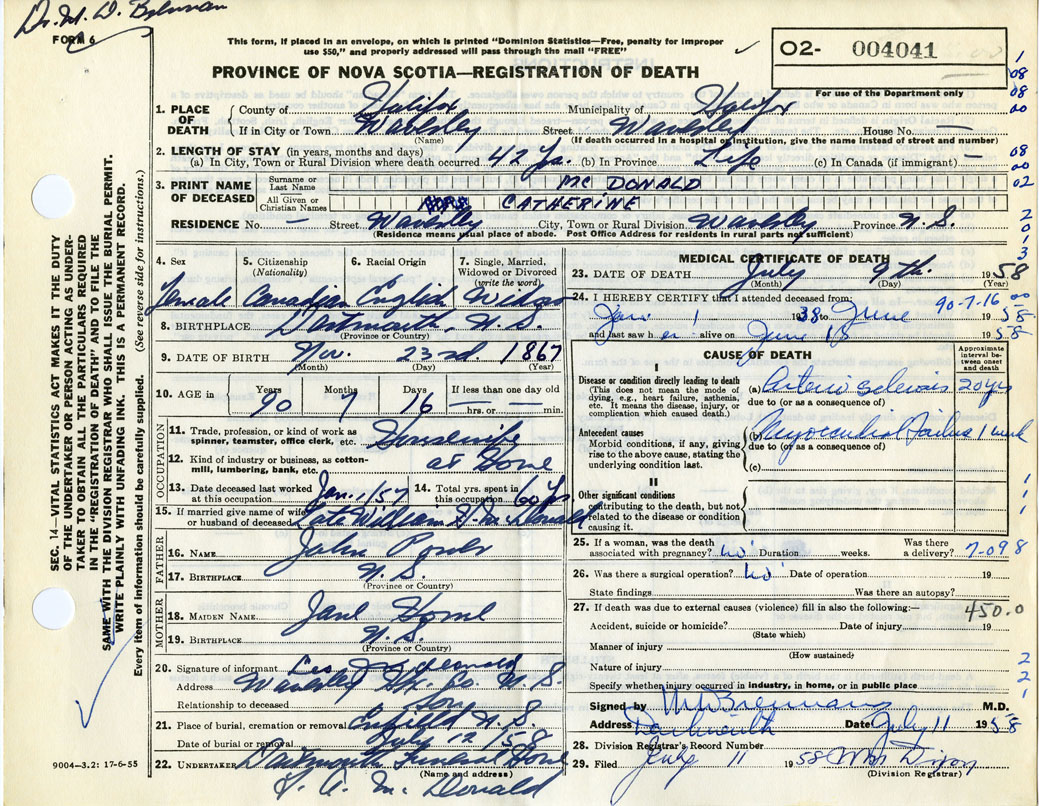 Dr. M. D. Brennan
FORM 6
This form, if placed in an envelope, on which is printed "Dominion Statistics—Free, penalty for improper
use $50," and properly addressed will pass through the mail "FREE"
02- 004041
For use of the Department only
PROVINCE OF NOVA SCOTIA—REGISTRATION OF DEATH
1. PLACE OF DEATH
County of Halifax Municipality of Halifax
If in City or Town Waverley Street Waverley House No. —
(Name) (If death occurred in a hospital or institution, give name instead of street and number)
2. LENGTH OF STAY (in years, months and days)
(a) In City, Town or Rural Division where death occurred 42 Yrs. (b) In Province Life (c) In Canada (if immigrant) —
3. PRINT NAME OF DECEASED
Surname or Last Name MC DONALD
All Given or Christian Names CATHERINE
RESIDENCE No. — Street Waverley City, Town or Rural Division Waverley Province N.S.
(Residence means usual place of abode. Post Office Address for residents in rural parts not sufficient)
4. Sex
Female
5. Citizenship (Nationality)
Canadian
6. Racial Origin
English
7. Single, Married, Widowed or Divorced (write the word)
Widow
8. BIRTHPLACE Dartmouth, N.S.
(Province or Country)
9. DATE OF BIRTH Nov. 23rd. 1867
(Month) (Day) (Year)
10. AGE in
Years Months Days If less than one day old
90 7 16 — hrs. or — min.
OCCUPATION
11. Trade, profession or kind of work as spinner, teamster, office clerk, etc. Housewife
12. Kind of industry or business, as cotton-mill, lumbering, bank, etc. at Home
13. Date deceased last worked at this occupation Jan. 1/57
14. Total yrs. spent in this occupation 60 Yrs
15. If married give name of wife or husband of deceased Late William McDonald
FATHER
16. NAME John
17. BIRTHPLACE N.S.
(Province or Country)
MOTHER
18. MAIDEN NAME Jane
19. BIRTHPLACE N.S.
(Province or Country)
20. Signature of informant McDonald
Address Waverley Hfx. Co. N.S.
Relationship to deceased Son
21. Place of burial, cremation or removal Enfield N.S.
Date of burial or removal July 12/58
22. UNDERTAKER Dartmouth Funeral Home
(Name and address)
McDonald
9004-3.2: 17-6-55
MEDICAL CERTIFICATE OF DEATH
23. DATE OF DEATH July 9th. 1958
(Month) (Day) (Year)
24. I HEREBY CERTIFY that I attended deceased from: 90-7-16
Jan 1 1938 to June 1958
and last saw her alive on June 18 1958
CAUSE OF DEATH
Approximate interval between onset and death
I
Disease or condition directly leading to death
(This does not mean the mode of dying, e.g., heart failure, asthenia, etc. It means the disease, injury, or complication which caused death.)
(a) Arterio sclerosis 20 yrs
due to (or as a consequence of)
Antecedent causes
Morbid conditions, if any, giving rise to the above cause, stating the underlying condition last.
(b) Myocardial Failure 1 week
due to (or as a consequence of)
(c)
II
Other significant conditions
contributing to the death, but not related to the disease or condition causing it.
25. If a woman, was the death associated with pregnancy? no Duration weeks. Was there a delivery? 7-098
26. Was there a surgical operation? no Date of operation 19
State findings Was there an autopsy?
27. If death was due to external causes (violence) fill in also the following:— 450.0
Accident, suicide or homicide? Date of injury 19
(State which)
Manner of injury
(How sustained)
Nature of injury
Specify whether injury occurred in industry, in home, or in public place
Signed by M D Brennan M.D.
Address Dartmouth Date July 11 1958
28. Division Registrar's Record Number
29. Filed July 11 1958 Mrs Dixon
(Division Registrar)
SEC. 14—VITAL STATISTICS ACT MAKES IT THE DUTY
OF THE UNDERTAKER OR PERSON ACTING AS UNDER-
TAKER TO OBTAIN ALL THE PARTICULARS REQUIRED
IN THE "REGISTRATION OF DEATH" AND TO FILE THE
SAME WITH THE DIVISION REGISTRAR WHO SHALL ISSUE THE BURIAL PERMIT.
WRITE PLAINLY WITH UNFADING INK. THIS IS A PERMANENT RECORD.
Every item of information should be carefully supplied. (See reverse side for instructions.)
1
08
08
00
08
00
02
2
0
1
3
00
1
1
1
2
2
1